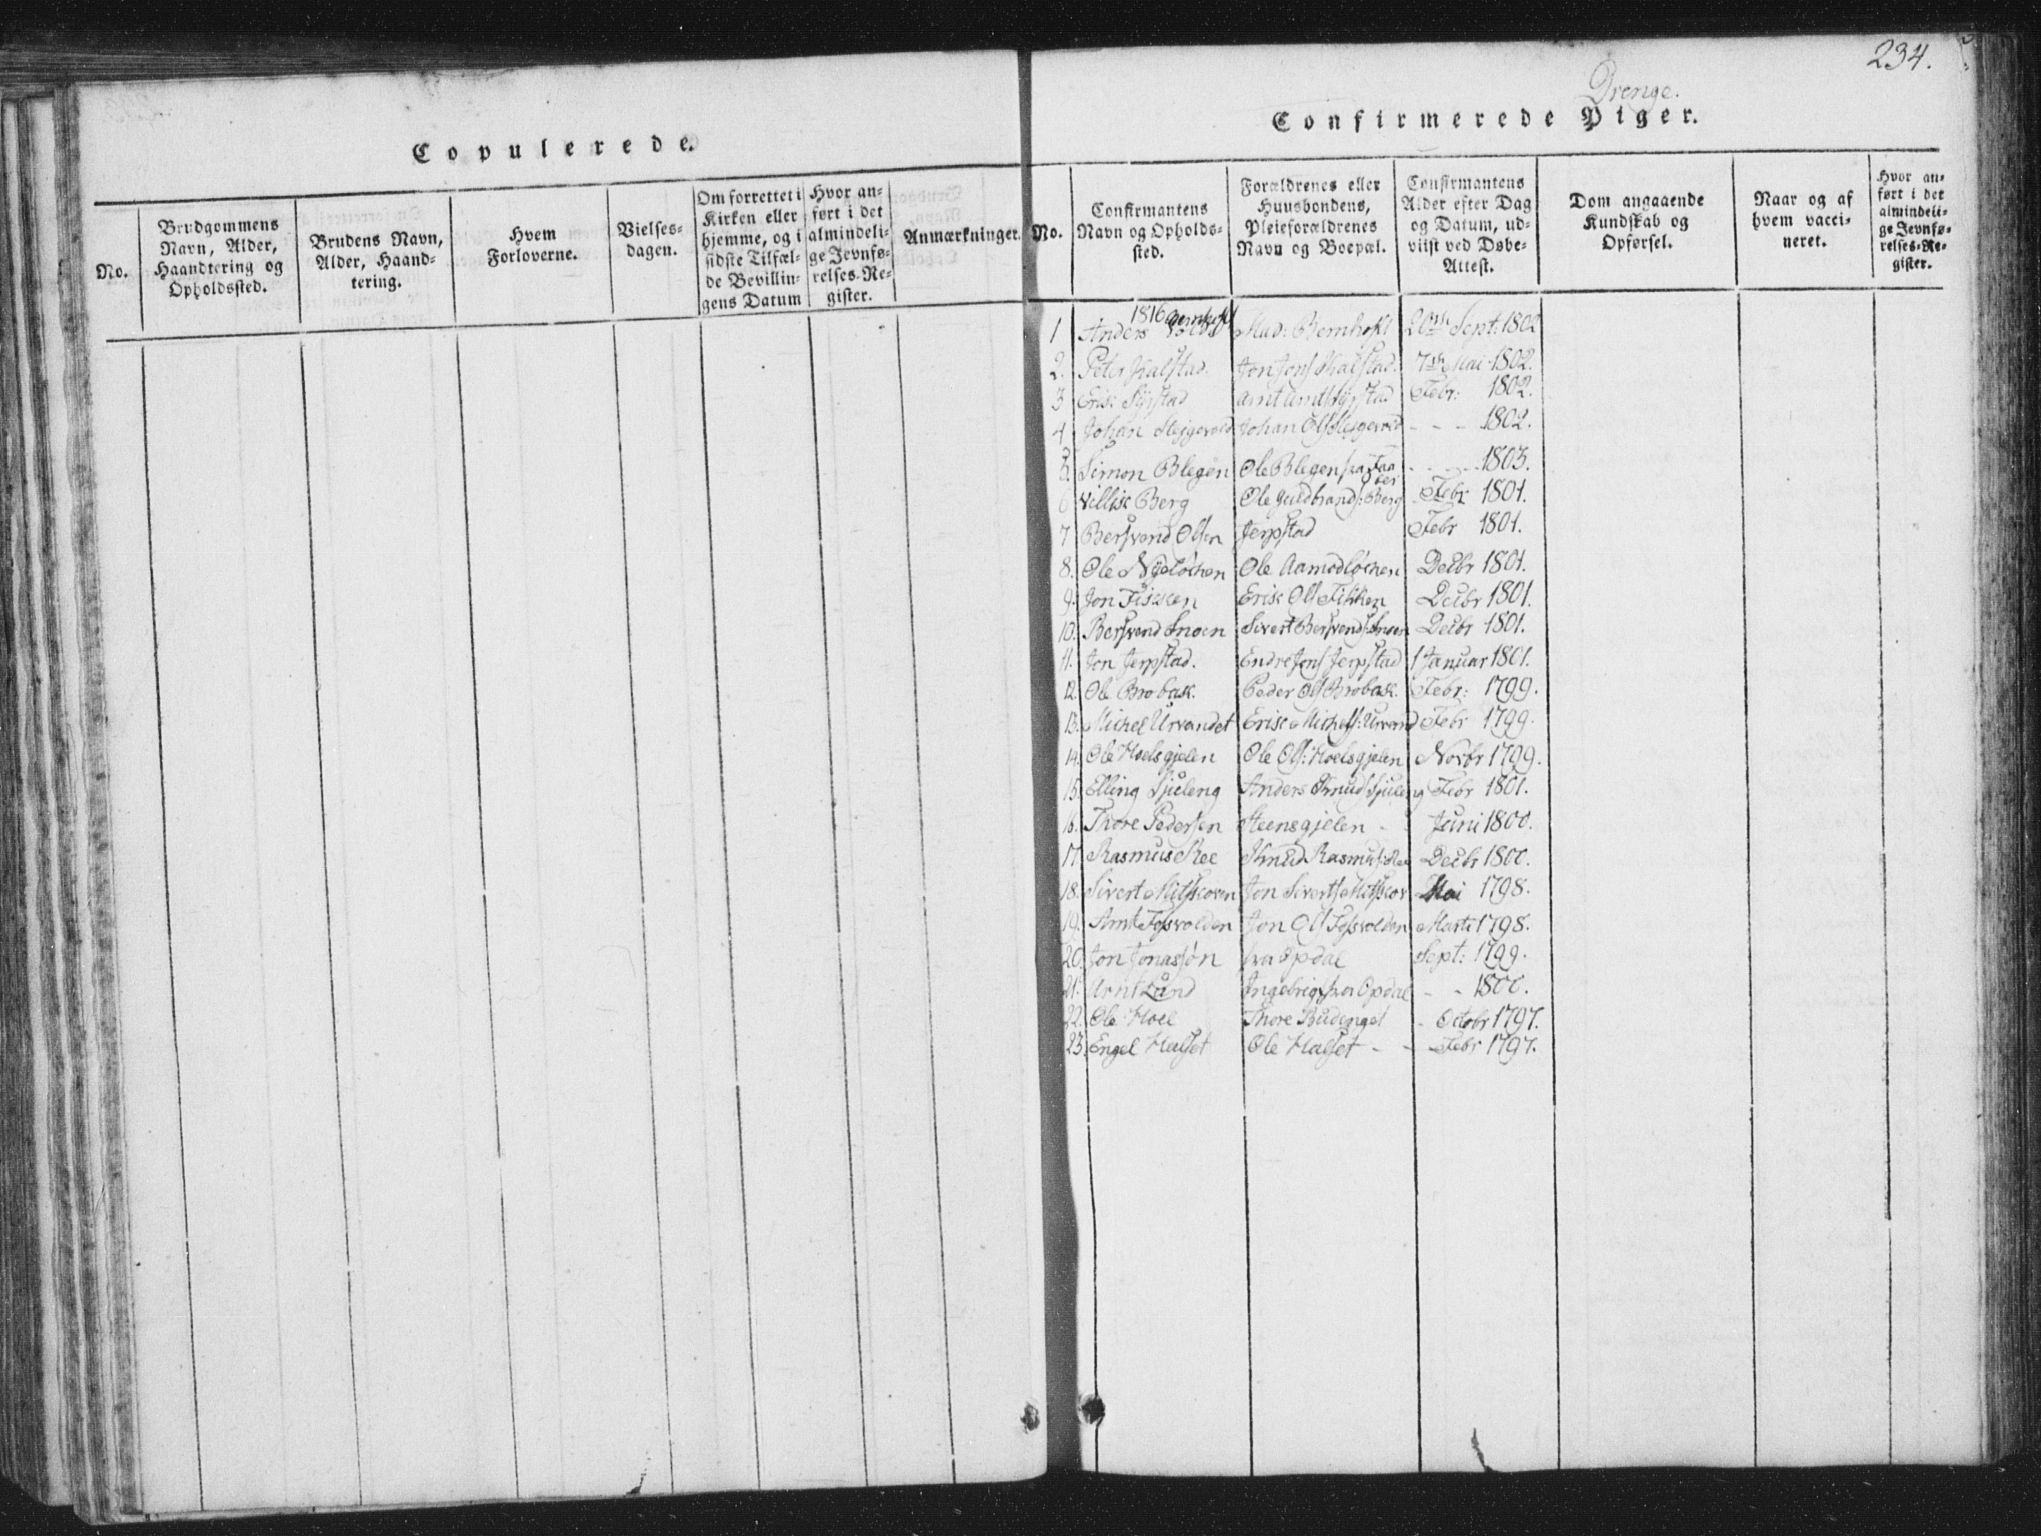 Copulerede.
No.
Brudgommens Navn, Alder, Haandtering og Opholdssted.
Brudens Navn, Alder, Haandtering.
Hvem Forloverne.
Vielsesdagen.
Om forrettet i Kirken eller hjemme, og i sidste Tilfælde Bevillingens Datum
Hvor anført i det almindelige Jevnførelses-Register.
Anmærkninger.
234.
Drenge.
Confirmerede Piger.
No.
Confirmantens Navn og Opholdssted.
Forældrenes eller Huusbondens, Pleieforældrenes Navn og Boepæl.
Confirmantens Alder efter Dag og Datum, udviist ved Døbe-Attest.
Dom angaaende Kundskab og Opførsel.
Naar og af hvem vaccineret.
Hvor anført i det almindelige Jevnførelses-Register.
1816
1 Anders Mad: Bernhoft 20de Sept: 1802
2. Peter Kalstad. Jon Jons Kalstad. 7de Mai 1802.
3 Erik Syrstad Arnt Arnts Syrstad Febr: 1802.
4 Johan Johan Ols - - - 1802.
5. Simon Blegen Ole Blegen fra - - - 1803.
6 Berg Ole Guldbrands: Berg Febr 1801.
7 Bersvend Olsen Jerpstad Febr 1801.
8. Ole Nyeløchen Ole Aamodløchen Decbr 1801.
9. Jon Fisken Erik Ols Decbr 1801.
10. Bersvend Snoen Sivert Bersvends: Snoen Decbr 1801.
11. Jon Jerpstad. Endre Jons Jerpstad 1 Januar 1801.
12. Ole Brobak. Peder Ols Brobak. Febr: 1799.
13. Michel Urvandet Erik Michels: Urvand Febr 1799.
14. Ole Hoelsgjelen Ole Ols: Hoelsgjelen Novbr 1799.
15. Elling Sjuleng Anders Knuds Sjuleng Febr 1801.
16. Thore Pedersen Steensgjelen - Juni 1800.
17. Rasmus Ree Knud Rasmus: Ree Decbr 1800.
18. Sivert Jon Siverts Mai 1798.
19. Arnt Fossvolden Jon Ols Fossvolden Marti 1798.
20. Jon Jonassøn fra Opdal Sept: 1799.
21. Arnt Lund fra Opdal - - 1800.
22. Ole Hoel Thore Budenget - Octobr 1797.
23. Engel Halset Ole Halset - - Febr 1797.